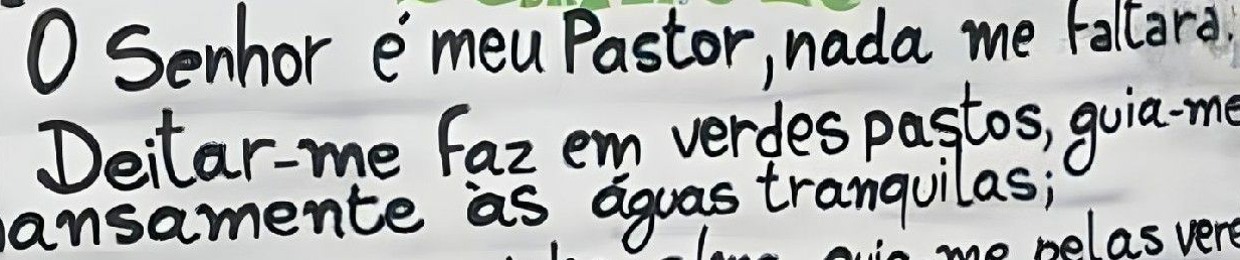 O Senhor é meu Pastor, nada me faltara.
Deitar-me faz em verdes pastos, guia-me
mansamente às águas tranquilas;
guia-me pelas vere